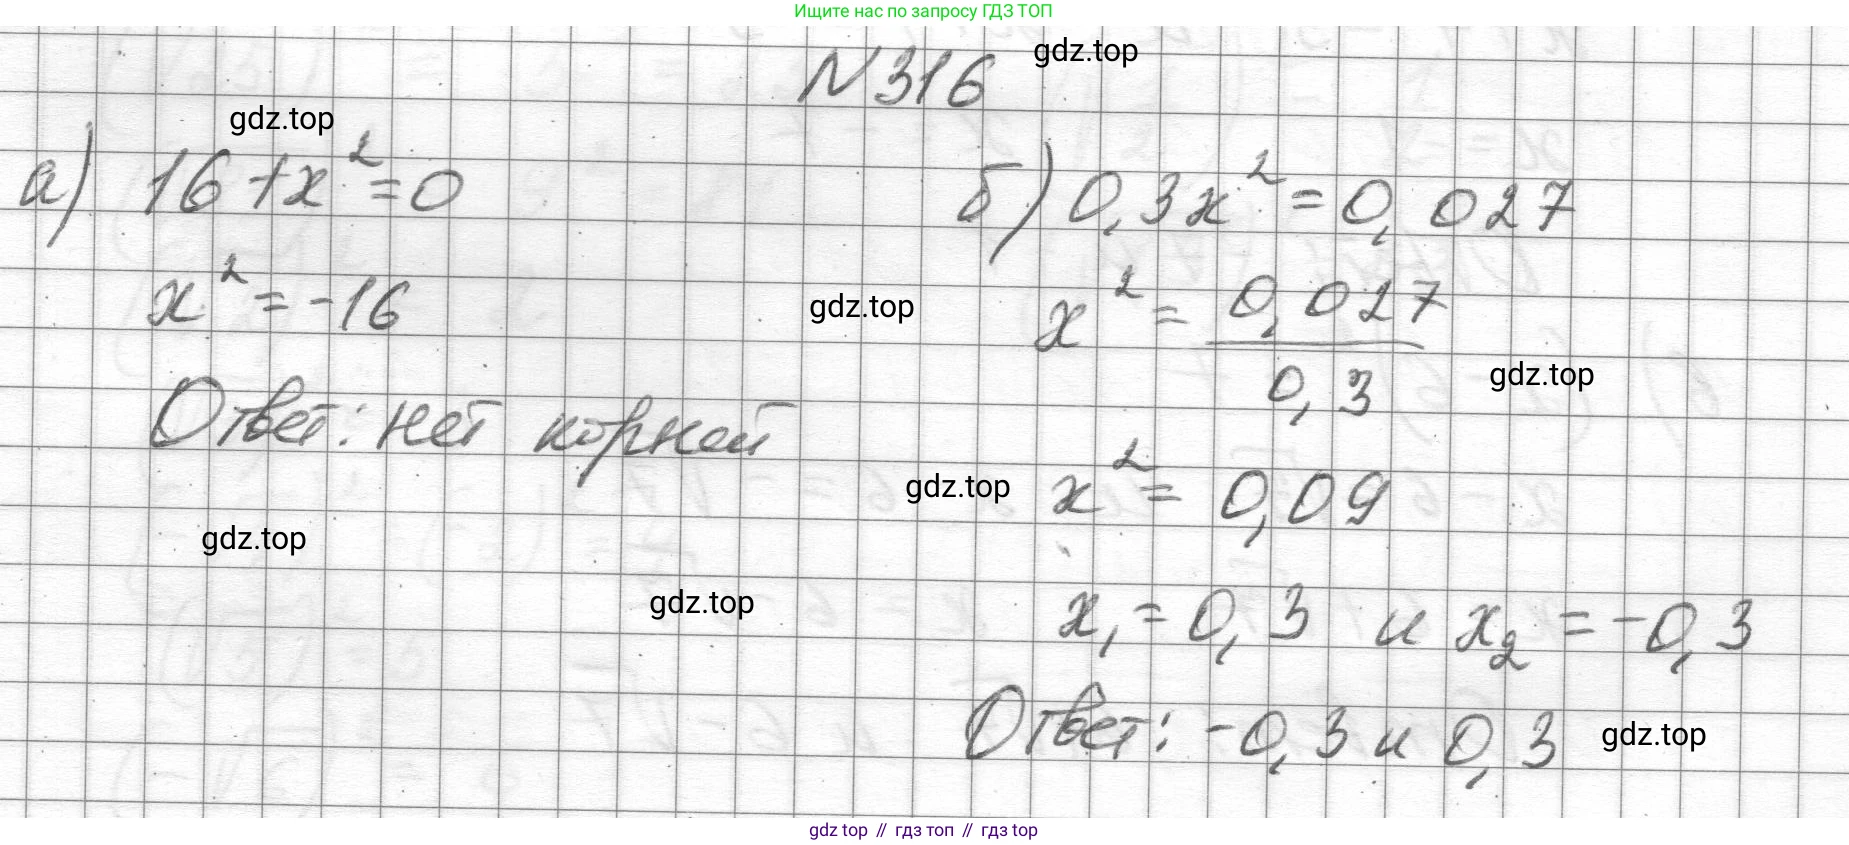 Ищите нас по запросу ГДЗ ТОП
N 316
gdz.top
gdz.top
а) 16 + x² = 0
x² = -16
Ответ: нет корней
gdz.top
б) 0,3x² = 0,027
gdz.top
x² = 0,027 / 0,3
gdz.top
gdz.top
x² = 0,09
gdz.top
x₁ = 0,3 и x₂ = -0,3
Ответ: -0,3 и 0,3
gdz.top
gdz top // гдз топ // гдз top